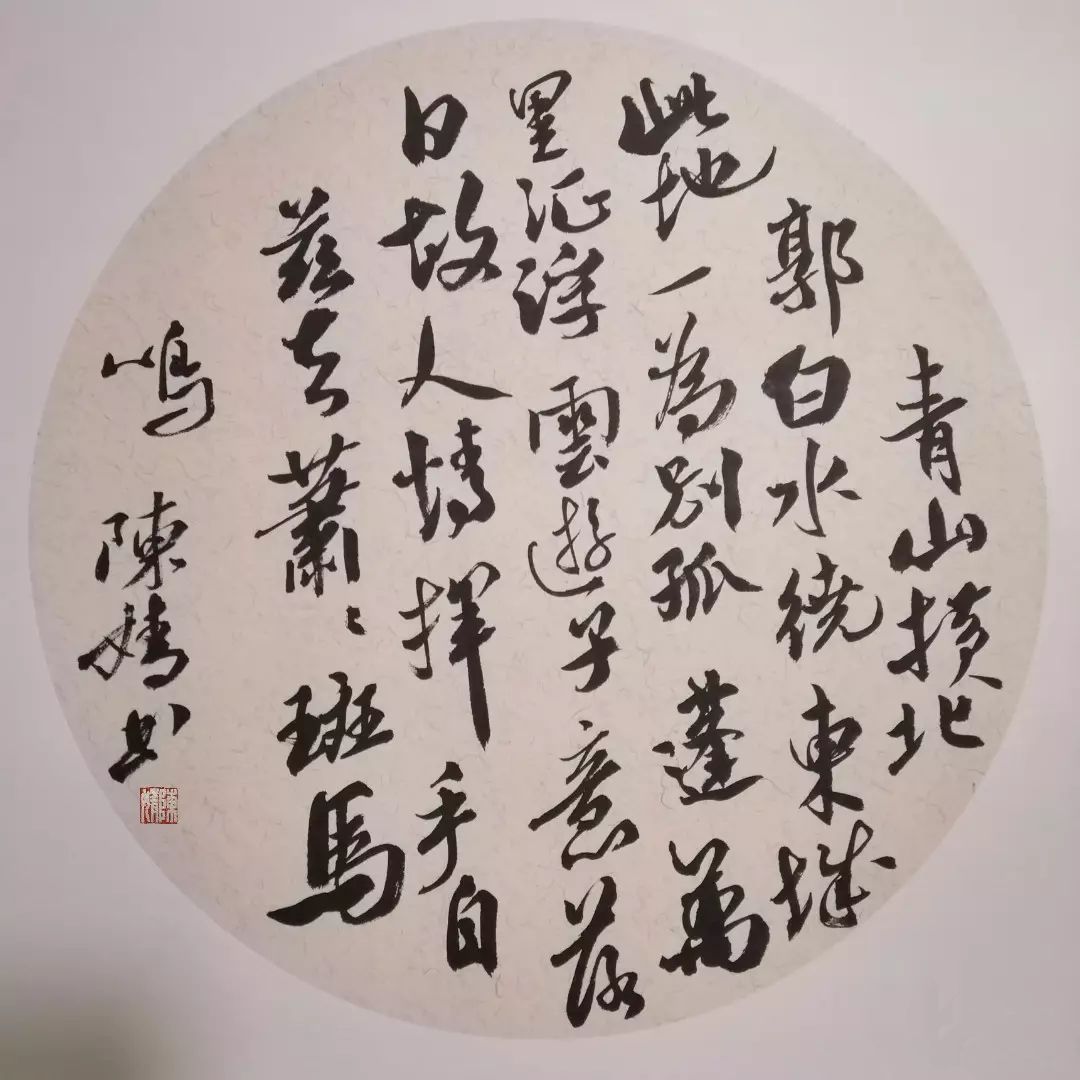 青山橫北
郭白水繞東城
此地一為別孤蓬萬
里征浮雲遊子意落
日故人情揮手自
茲去蕭〻班馬
鳴 陳婧書
陳婧